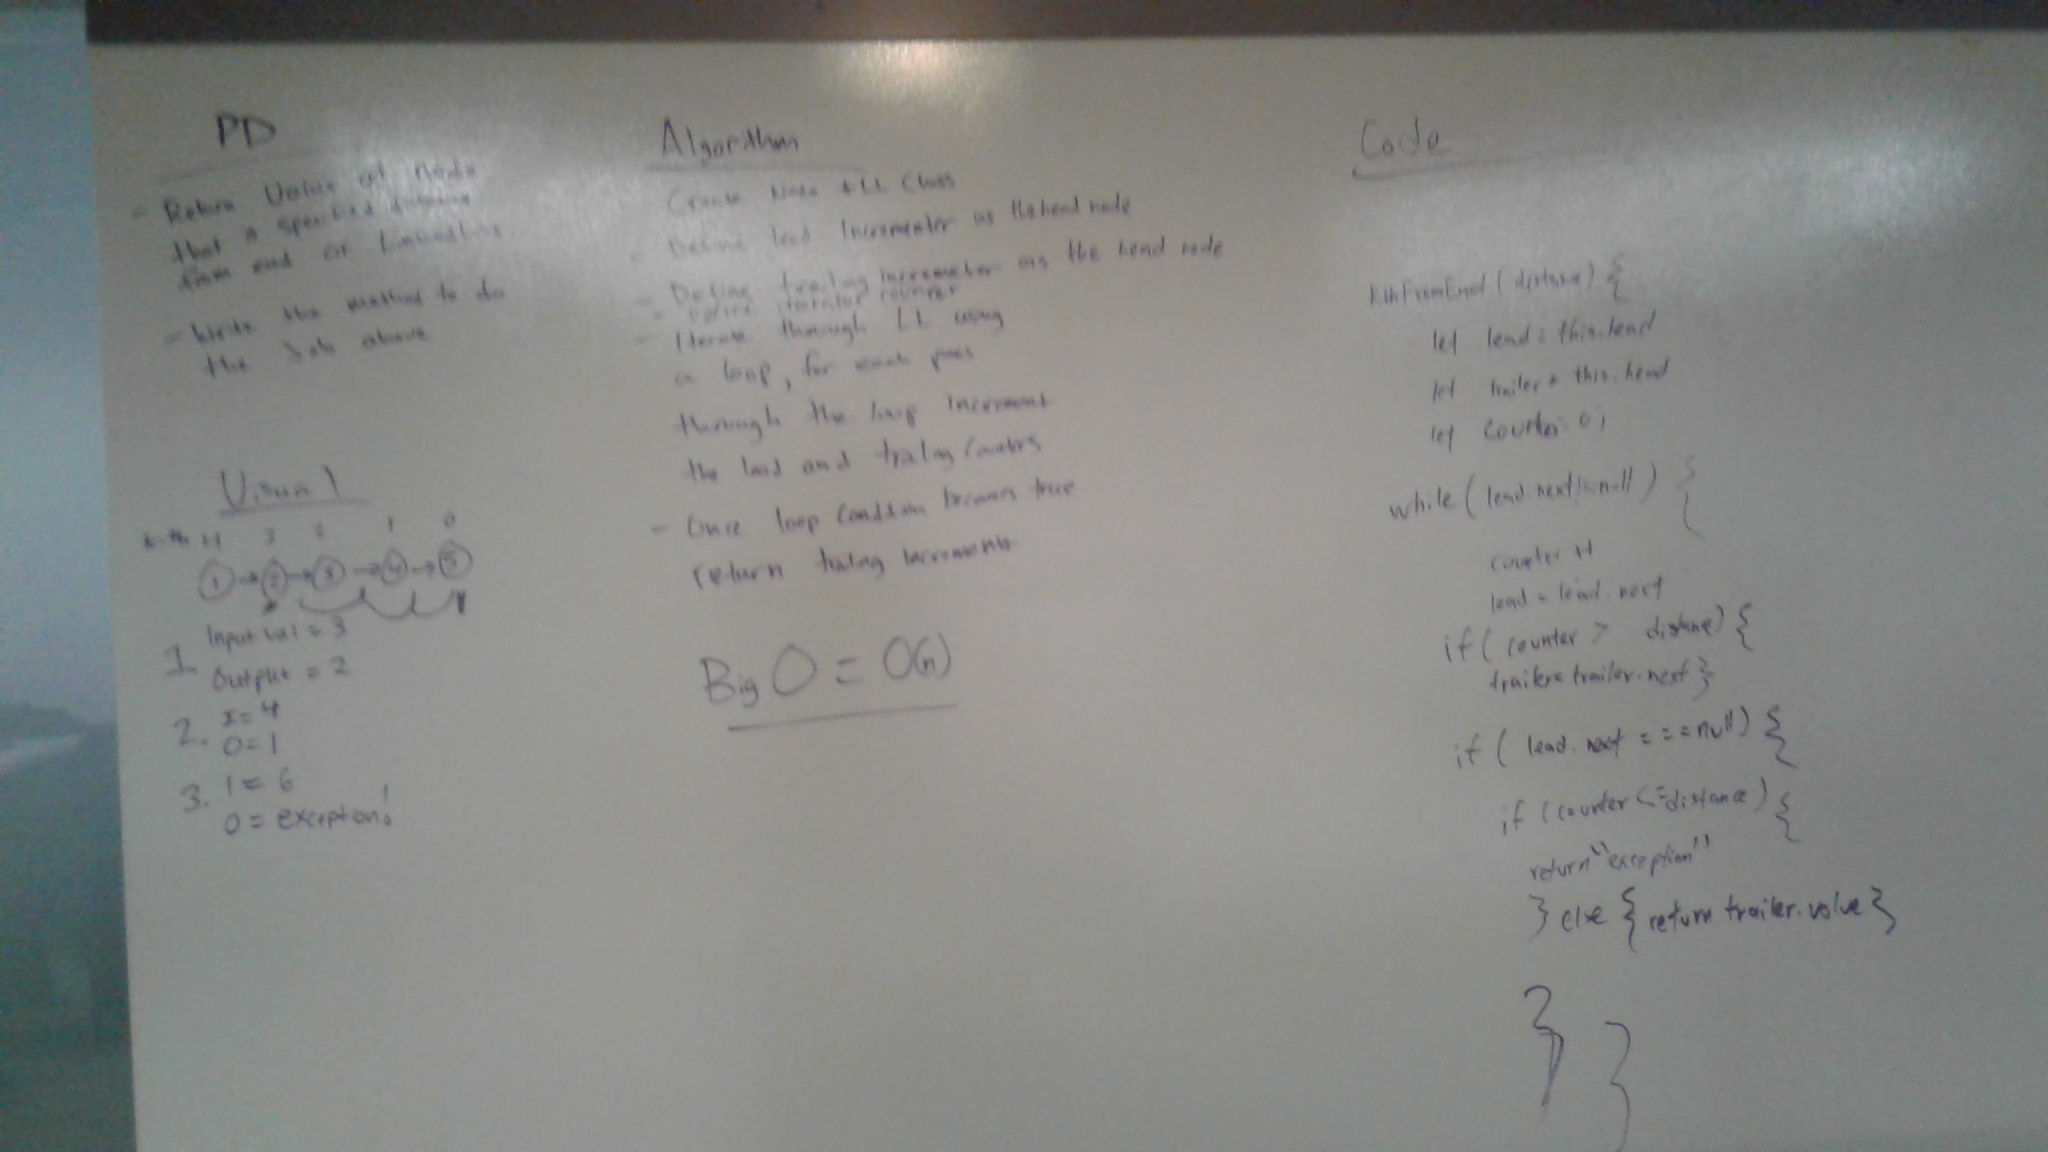 PD
- Return Value of Node
that a specified distance
from end of Linkedlist
- Write the method to do
the Job above
Visual
k-th 4 3 2 1 0
1 → 2 → 3 → 4 → 5
1. Input val = 3
Output = 2
2. I = 4
O = 1
3. I = 6
O = exception!
Algorithm
Create Node + LL Class
- Define lead Incrementer as the head node
- Define trailing Incrementer as the head node
- Define iterator counter
- Iterate through LL using
a loop, for each pass
through the loop increment
the lead and trailing counters
- Once loop condition becomes true
return trailing incrementer
Big O = O(n)
Code
KthFromEnd(distance) {
let lead = this.head
let trailer = this.head
let counter = 0;
while (lead.next != null) {
counter ++
lead = lead.next
if (counter > distane) {
trailer = trailer.next }
if (lead.next === null) {
if (counter <= distance) {
return "exception"
} else { return trailer.value }
}
}